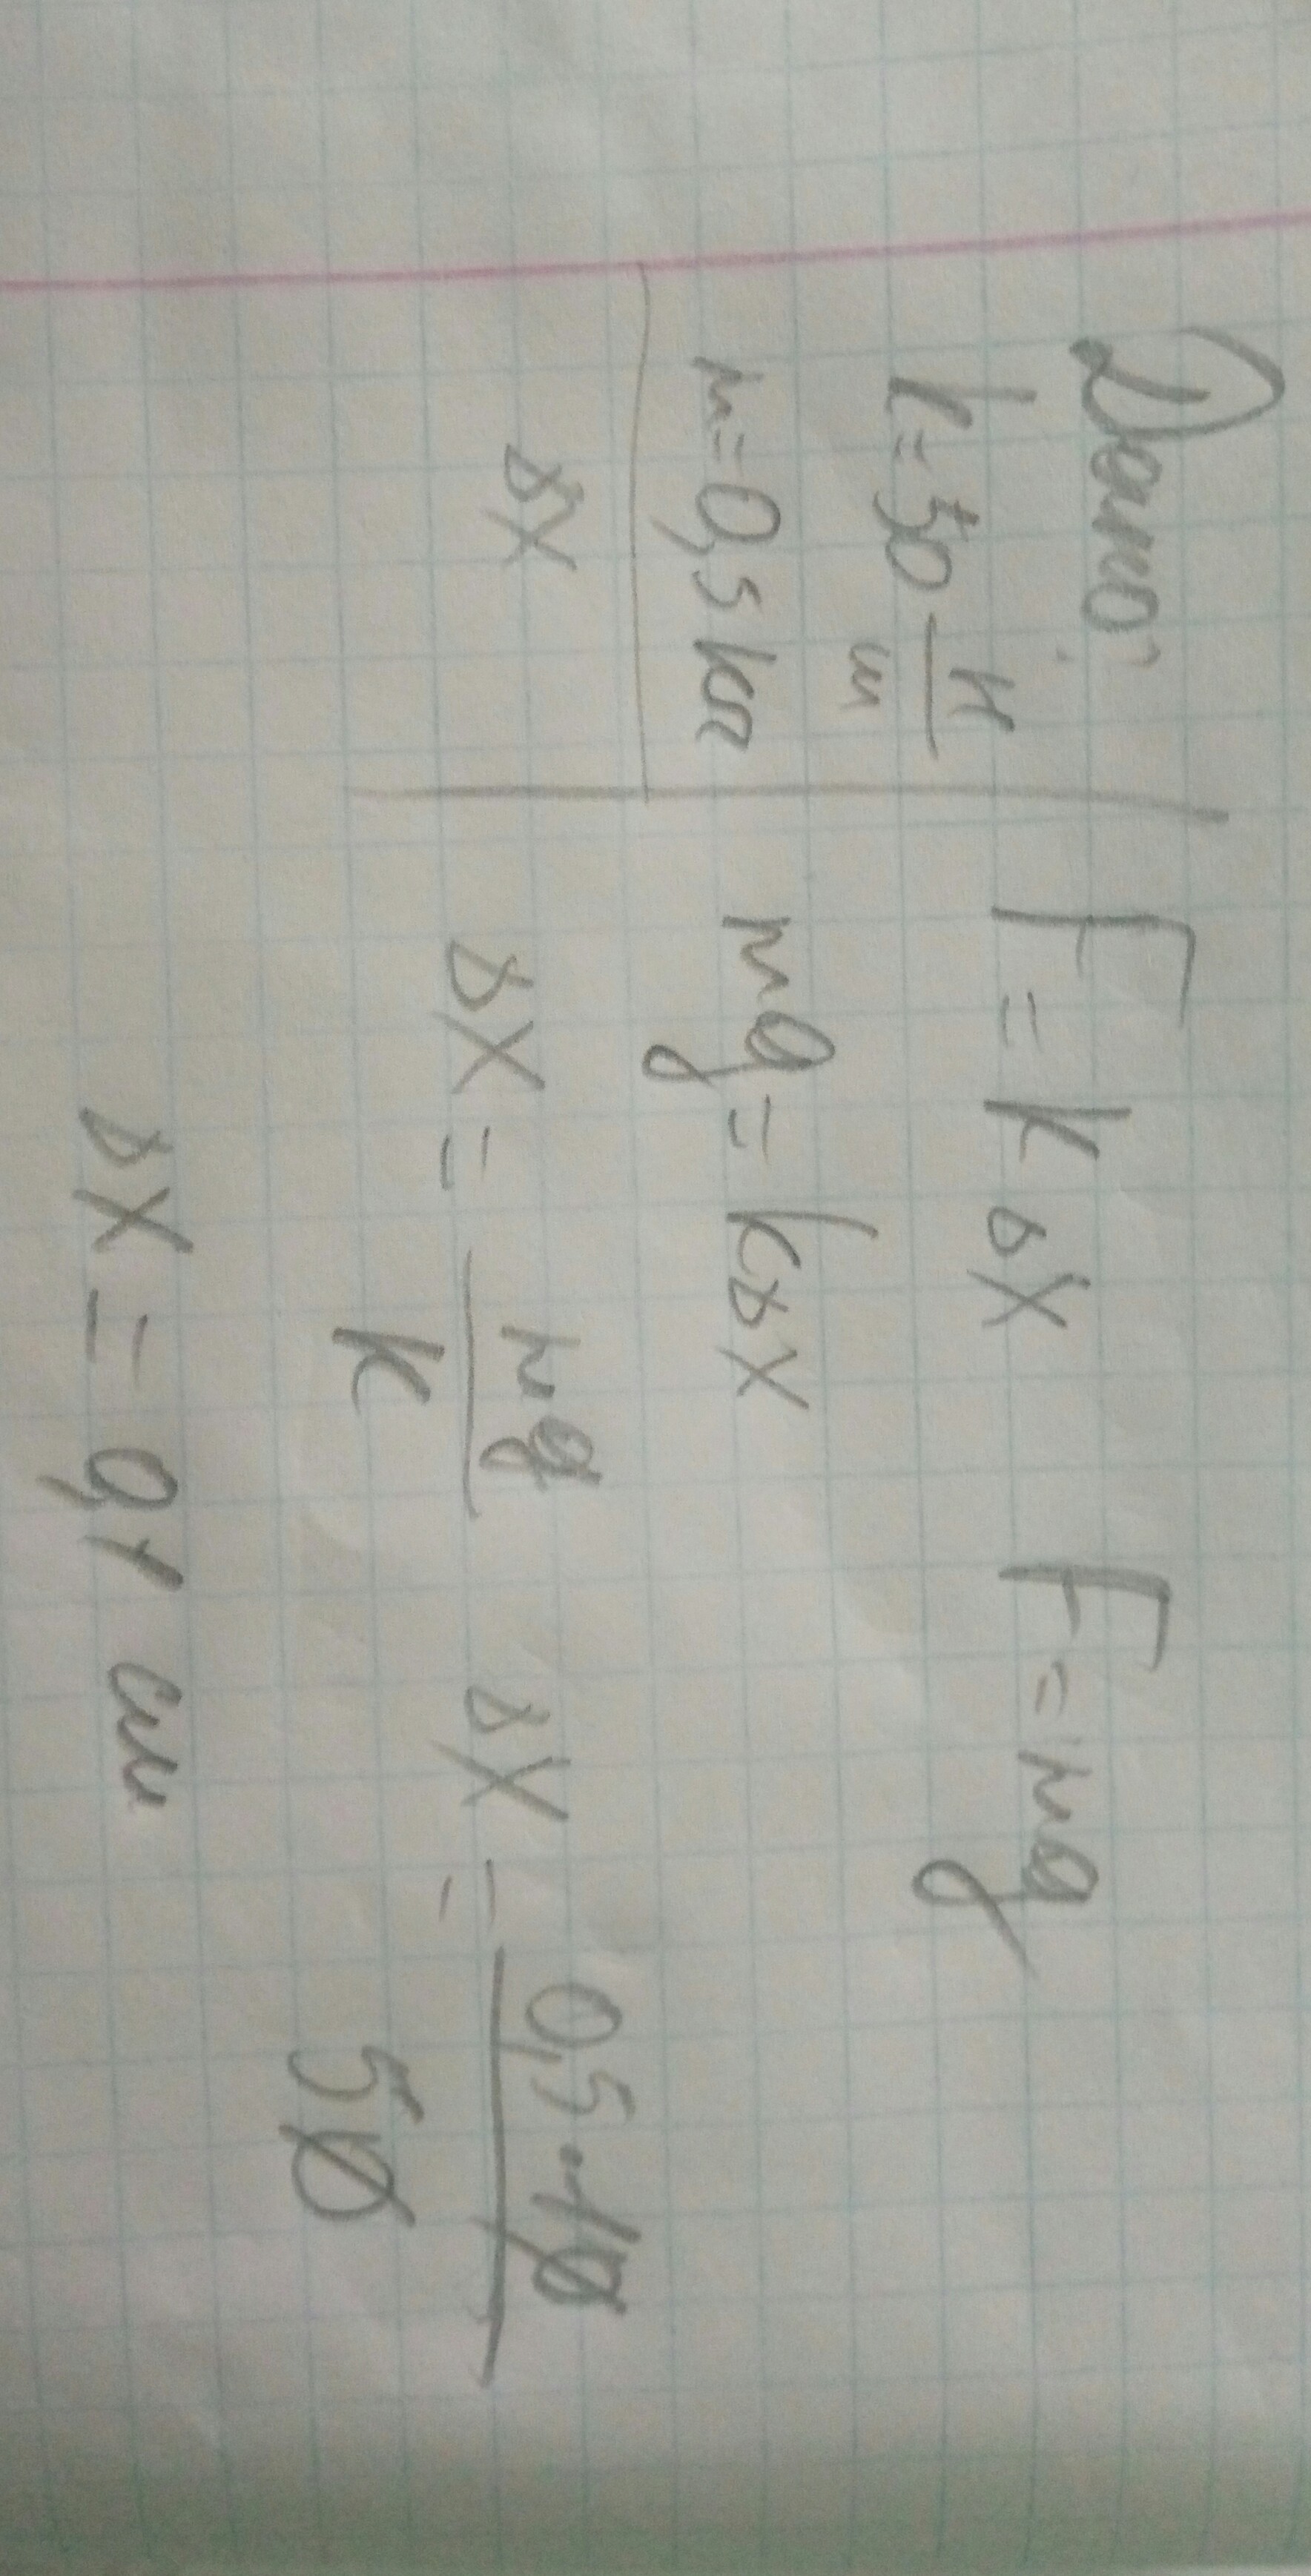 Дано:
k = 50 Н/м
m = 0,5 кг
Δx
F = kΔx F = mg
mg = kΔx
Δx = mg/k Δx = 0,5·10/50
Δx = 0,1 см